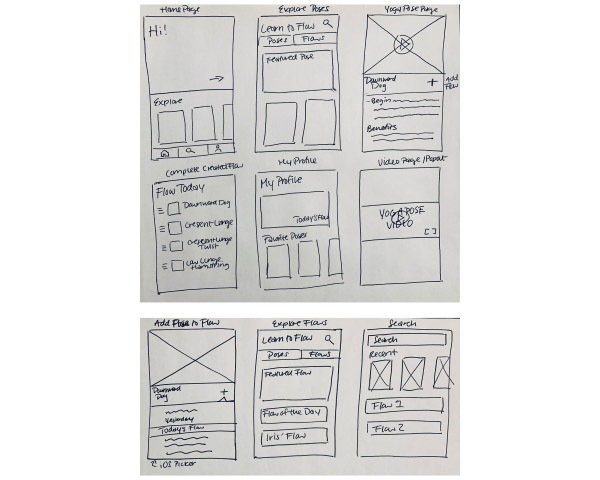 Home Page
Hi!
Explore
Explore Poses
Learn to Flow
Poses
Flows
Featured Pose
Yoga Pose Page
Downward
Dog
+
Add
Flow
-Begin
Benefits
Complete Created Flow
Flow Today
Downward Dog
Crescent Lunge
Crescent Lunge
Twist
Low Lunge
Hamstring
My Profile
My Profile
Today's Flow
Favorite Poses
Video Page/Popout
YOGA POSE
VIDEO
Add Pose to Flow
Downward
Dog
+
Yesterday
Today's Flow
iOS Picker
Explore Flows
Learn to Flow
Poses
Flows
Featured Flow
Flow of the Day
Iris' Flow
Search
Search
Recent
Flow 1
Flow 2